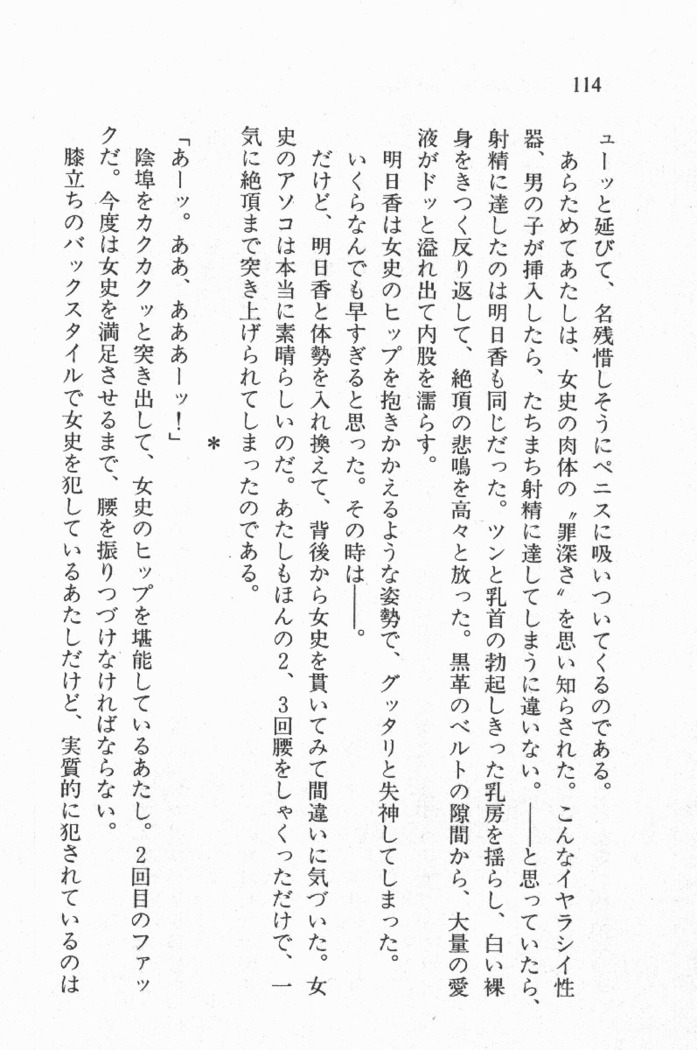 114
ューッと延びて、名残惜しそうにペニスに吸いついてくるのである。
あらためてあたしは、女史の肉体の〝罪深さ〟を思い知らされた。こんなイヤラシイ性
器、男の子が挿入したら、たちまち射精に達してしまうに違いない。――と思っていたら、
射精に達したのは明日香も同じだった。ツンと乳首の勃起しきった乳房を揺らし、白い裸
身をきつく反り返して、絶頂の悲鳴を高々と放った。黒革のベルトの隙間から、大量の愛
液がドッと溢れ出て内股を濡らす。
明日香は女史のヒップを抱きかかえるような姿勢で、グッタリと失神してしまった。
いくらなんでも早すぎると思った。その時は――。
だけど、明日香と体勢を入れ換えて、背後から女史を貫いてみて間違いに気づいた。女
史のアソコは本当に素晴らしいのだ。あたしもほんの2、3回腰をしゃくっただけで、一
気に絶頂まで突き上げられてしまったのである。
*
「あーッ。ああ、あああーッ！」
陰埠をカクカクッと突き出して、女史のヒップを堪能しているあたし。2回目のファッ
クだ。今度は女史を満足させるまで、腰を振りつづけなければならない。
膝立ちのバックスタイルで女史を犯しているあたしだけど、実質的に犯されているのは